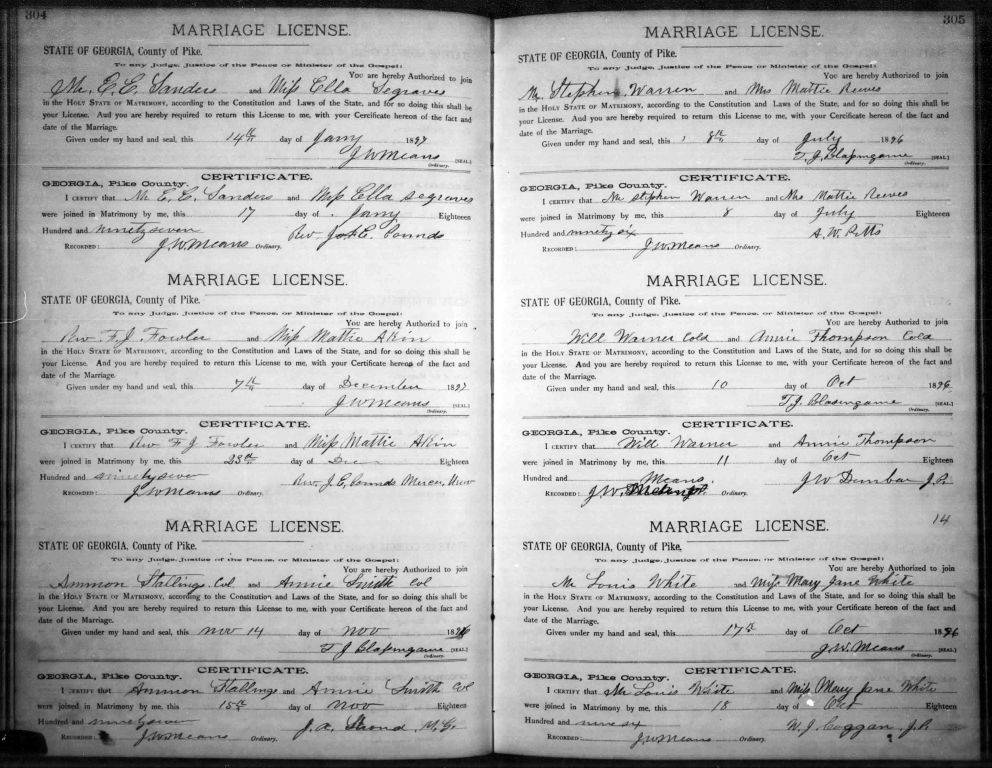 304
MARRIAGE LICENSE.
STATE OF GEORGIA, County of Pike.
To any Judge, Justice of the Peace or Minister of the Gospel:
You are hereby Authorized to join
Mr. E. E. Sanders and Miss Ella Segraves
in the HOLY STATE OF MATRIMONY, according to the Constitution and Laws of the State, and for so doing this shall be
your License. And you are hereby required to return this License to me, with your Certificate hereon of the fact and
date of the Marriage.
Given under my hand and seal, this 14th day of Jany 1897
J W Means [SEAL.]
Ordinary.
CERTIFICATE.
GEORGIA, Pike County.
I CERTIFY that Mr E. E. Sanders and Miss Ella Segraves
were joined in Matrimony by me, this 17 day of Jany Eighteen
Hundred and ninety seven Rev. E. Pounds
RECORDED: J. W. Means Ordinary.
MARRIAGE LICENSE.
STATE OF GEORGIA, County of Pike.
To any Judge, Justice of the Peace, or Minister of the Gospel:
You are hereby Authorized to join
Rev F. J. Fowler and Miss Mattie Akin
in the HOLY STATE OF MATRIMONY, according to the Constitution and Laws of the State, and for so doing this shall be
your License. And you are hereby required to return this License to me, with your Certificate hereon of the fact and
date of the Marriage.
Given under my hand and seal, this 7th day of December 1897
J W Means [SEAL.]
Ordinary.
CERTIFICATE.
GEORGIA, Pike County.
I CERTIFY that Rev F J Fowler and Miss Mattie Akin
were joined in Matrimony by me, this 23rd day of Eighteen
Hundred and ninety seven Rev. J. E. Pounds Mercer
RECORDED: J. W. Means Ordinary.
MARRIAGE LICENSE.
STATE OF GEORGIA, County of Pike.
To any Judge, Justice of the Peace, or Minister of the Gospel:
You are hereby Authorized to join
Ammon Stallings Col and Annie Smith Col
in the HOLY STATE OF MATRIMONY, according to the Constitution and Laws of the State, and for so doing this shall be
your License. And you are hereby required to return this License to me, with your Certificate hereon of the fact and
date of the Marriage.
Given under my hand and seal, this Nov 14 day of Nov 1896
T J Blasingame [SEAL.]
Ordinary.
CERTIFICATE.
GEORGIA, Pike County.
I CERTIFY that Ammon Stallings and Annie Smith Col
were joined in Matrimony by me, this 15th day of Nov Eighteen
Hundred and J. A. M. G.
RECORDED: J. W. Means Ordinary.
305
MARRIAGE LICENSE.
STATE OF GEORGIA, County of Pike.
To any Judge, Justice of the Peace or Minister of the Gospel:
You are hereby Authorized to join
Mr Stephen Warren and Mrs Mattie Reeves
in the HOLY STATE OF MATRIMONY, according to the Constitution and Laws of the State, and for so doing this shall be
your License. And you are hereby required to return this License to me, with your Certificate hereon of the fact and
date of the Marriage.
Given under my hand and seal, this 8th day of July 1896
T. J. Blasingame [SEAL.]
Ordinary.
CERTIFICATE.
GEORGIA, Pike County.
I CERTIFY that Mr Stephen Warren and Mrs Mattie Reeves
were joined in Matrimony by me, this 8 day of July Eighteen
Hundred and ninety six A. W. Pitts
RECORDED: J. W. Means Ordinary.
MARRIAGE LICENSE.
STATE OF GEORGIA, County of Pike.
To any Judge, Justice of the Peace, or Minister of the Gospel:
You are hereby Authorized to join
Will Warner Cold and Annie Thompson Cold
in the HOLY STATE OF MATRIMONY, according to the Constitution and Laws of the State, and for so doing this shall be
your License. And you are hereby required to return this License to me, with your Certificate hereon of the fact and
date of the Marriage.
Given under my hand and seal, this 10 day of Oct 1896
T. J. Blasingame [SEAL.]
Ordinary.
CERTIFICATE.
GEORGIA, Pike County.
I CERTIFY that Will Warner and Annie Thompson
were joined in Matrimony by me, this 11 day of Oct Eighteen
Hundred and J W Dunbar J.P.
RECORDED: J. W. Means. Ordinary.
14
MARRIAGE LICENSE.
STATE OF GEORGIA, County of Pike.
To any Judge, Justice of the Peace, or Minister of the Gospel:
You are hereby Authorized to join
Mr Louis White and Miss Mary Jane White
in the HOLY STATE OF MATRIMONY, according to the Constitution and Laws of the State, and for so doing this shall be
your License. And you are hereby required to return this License to me, with your Certificate hereon of the fact and
date of the Marriage.
Given under my hand and seal, this 17th day of Oct 1896
J. W. Means [SEAL.]
Ordinary.
CERTIFICATE.
GEORGIA, Pike County.
I CERTIFY that Mr Louis White and Miss Mary Jane White
were joined in Matrimony by me, this 18 day of Oct Eighteen
Hundred and nine six W. J. Coggan, J. P.
RECORDED: J W Means Ordinary.